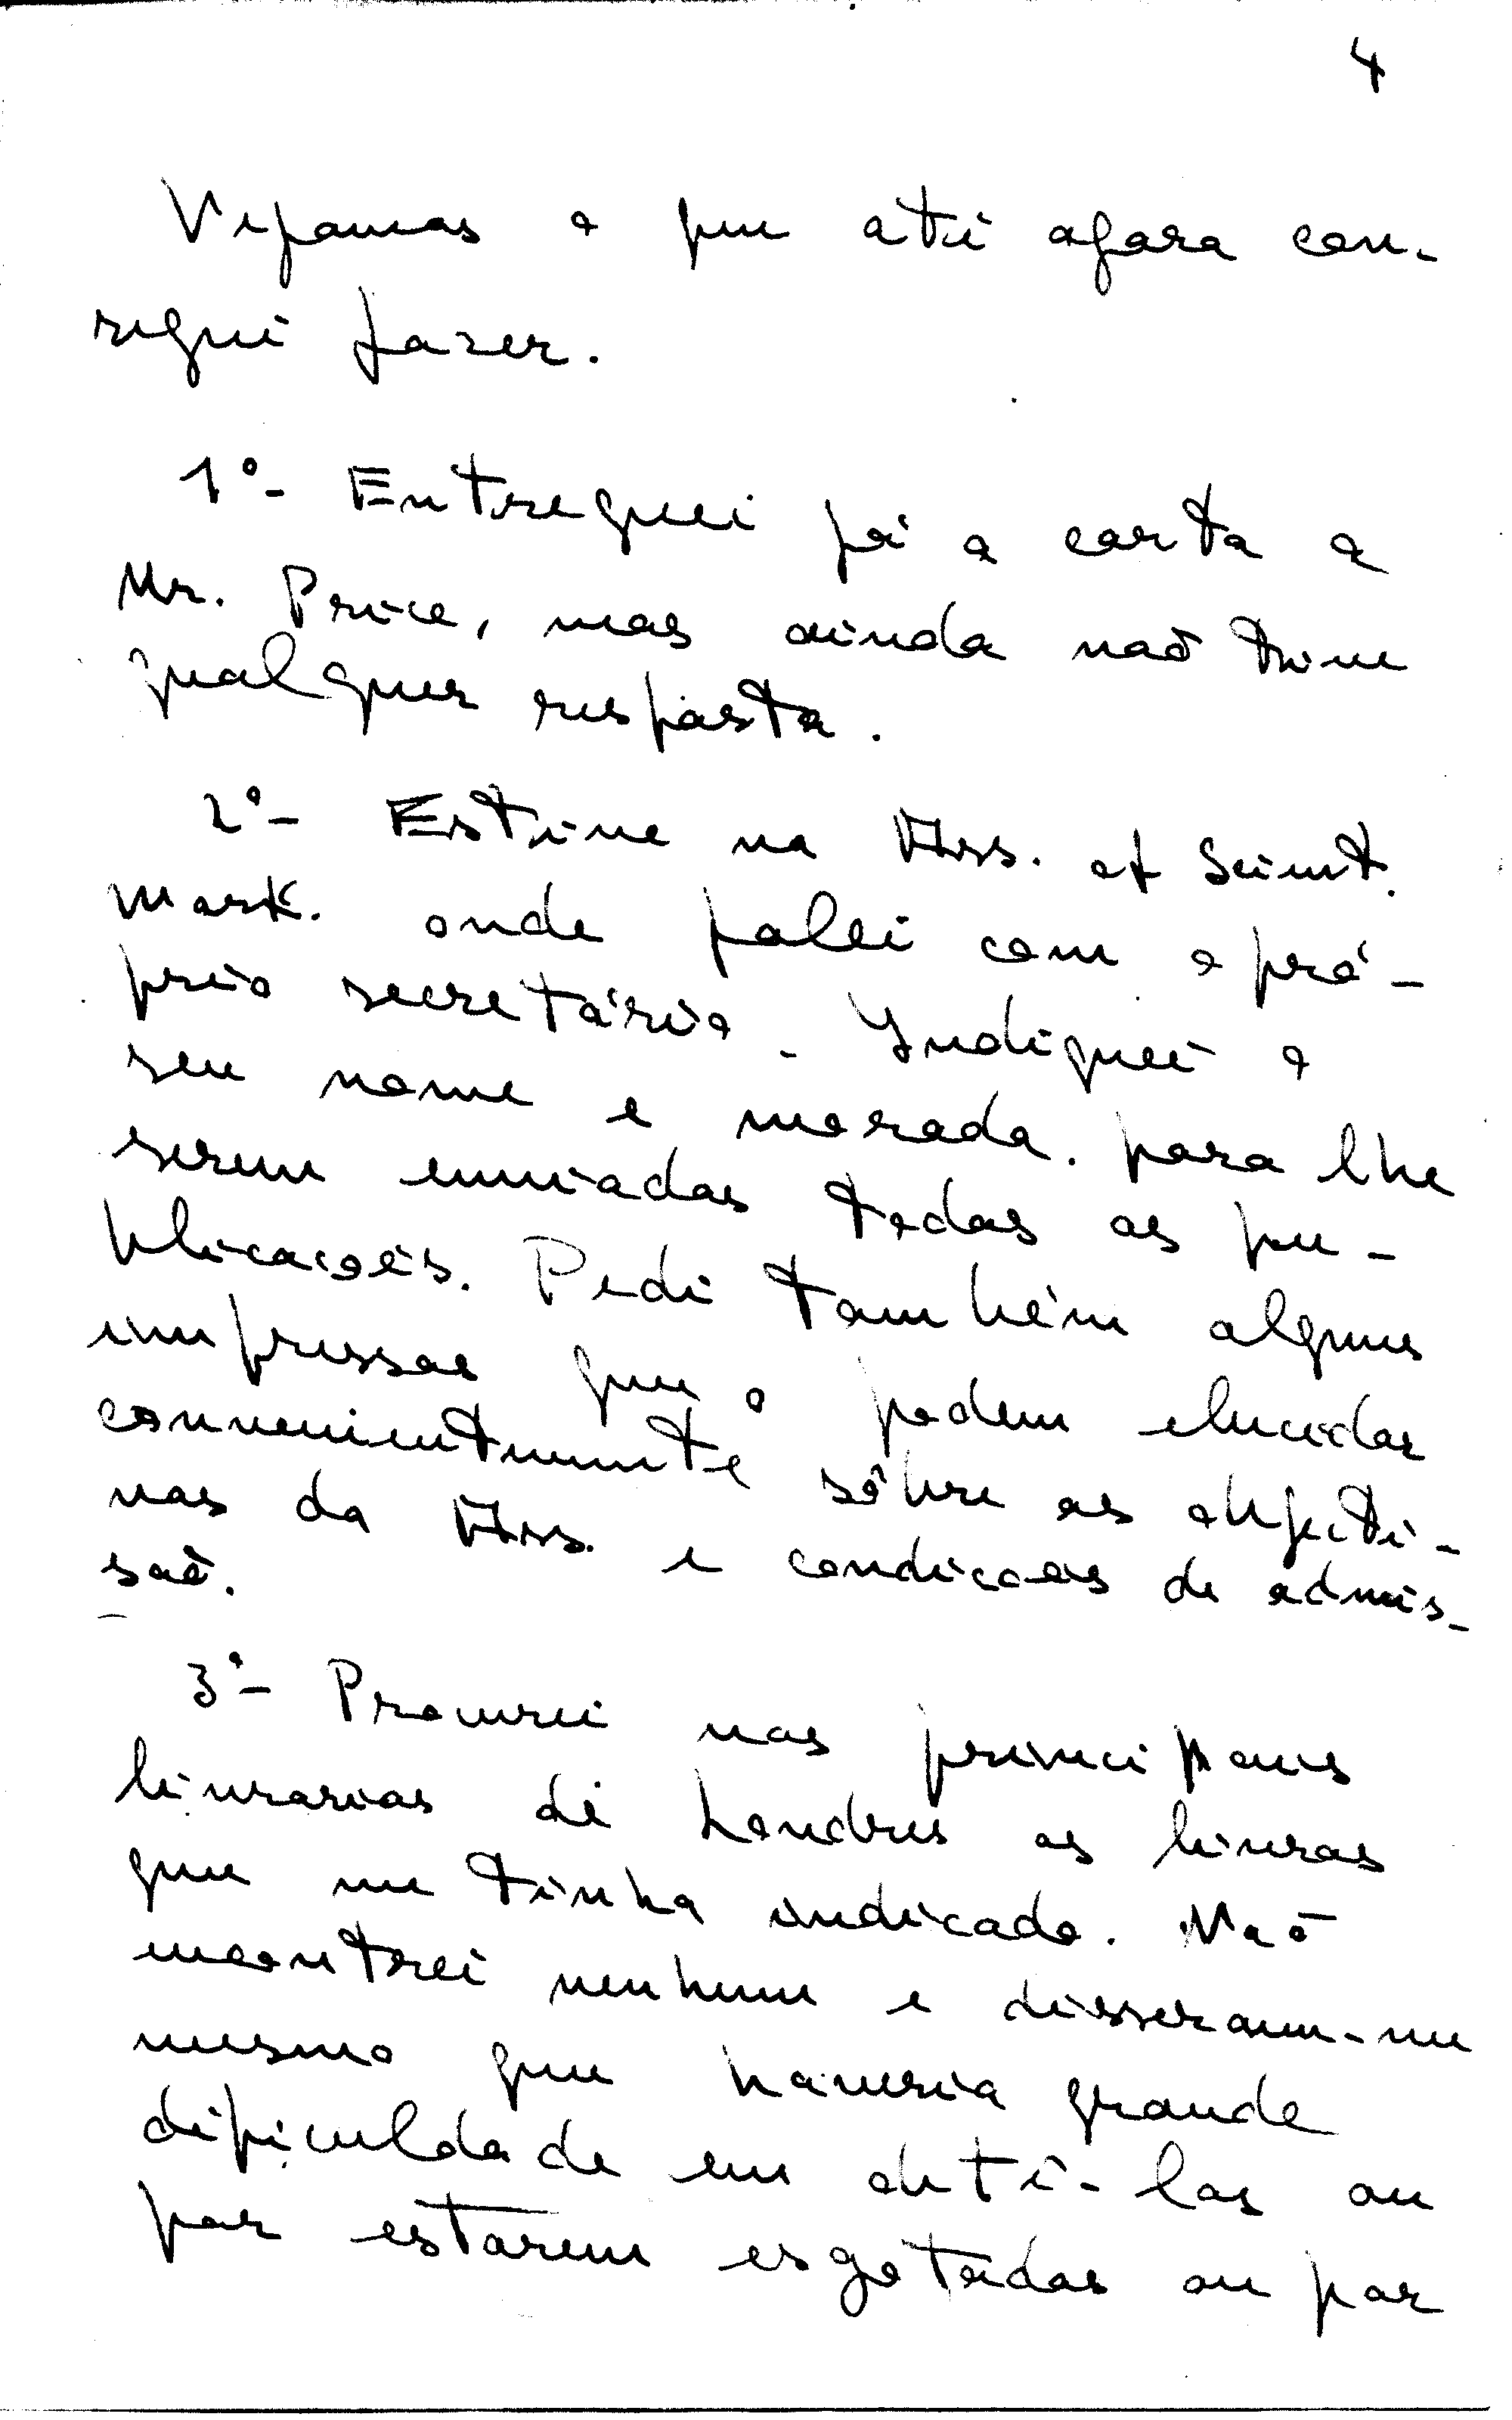 4
Vejamos o que até agora con-
segui fazer.
1º- Entreguei já a carta a
Mr. Price, mas ainda não tive
qualquer resposta.
2º- Estive na Ass. of Scient.
Mark. onde falei com o pró-
prio secretário. Indiquei o
seu nome e morada. para lhe
serem enviadas todas as pu-
blicações. Pedi também alguns
impressos que o podem elucidar
convenientemente sôbre os objecti-
vos da Ass. e condições de admis-
são.
3º- Procurei nas principais
livrarias de Londres os livros
que me tinha indicado. Não
encontrei nenhum e disseram-me
mesmo que haveria grande
dificuldade em obtê-los ou
por estarem esgotados ou por